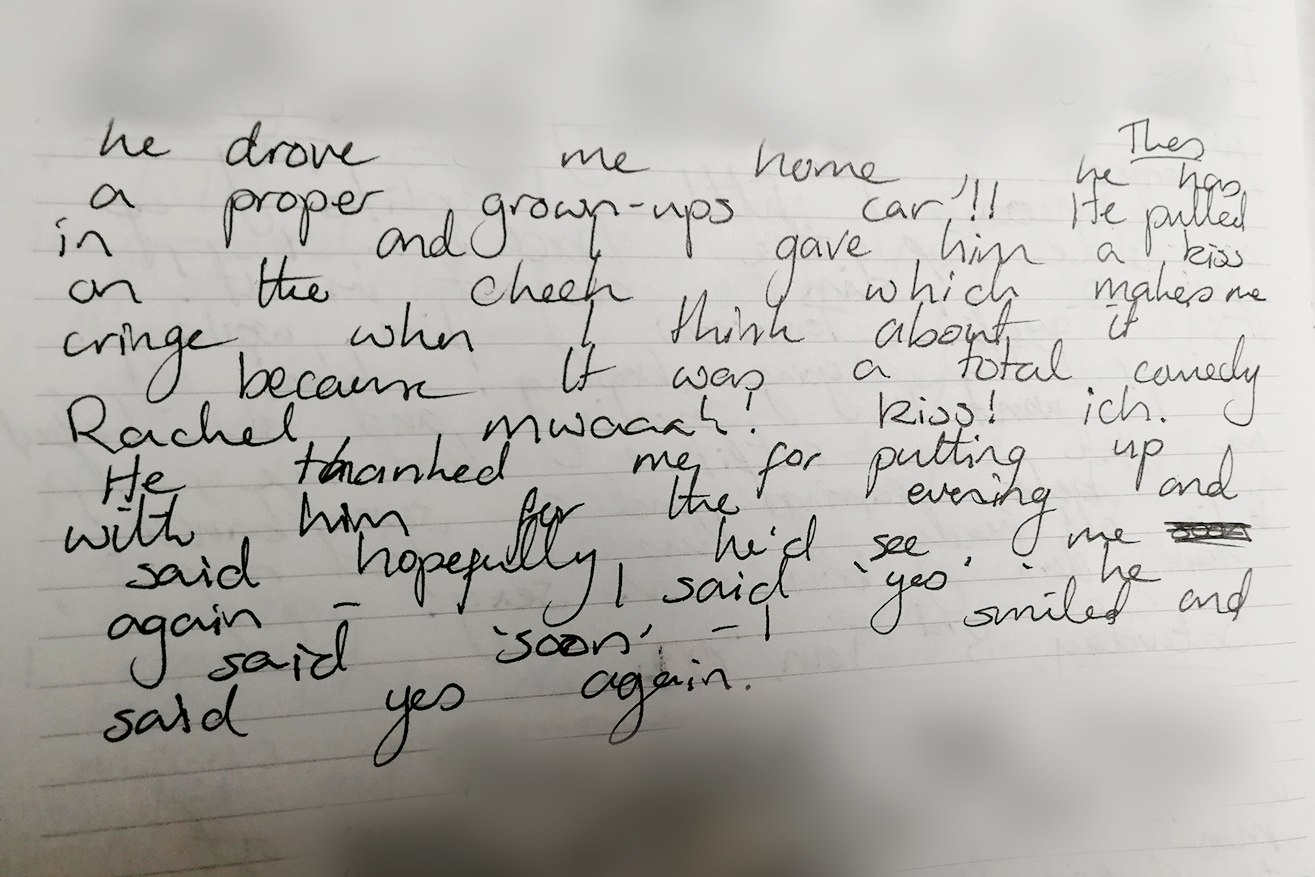 Then
he drove me home, he has
a proper grown-ups car!!! He pulled
in and I gave him a kiss
on the cheek which makes me
cringe when I think about it
because it was a total comedy
Rachel, mwaaah! kiss! ich.
He thanked me for putting up
with him for the evening and
said hopefully he'd see me
again – I said 'yes'. he smiled and
said 'soon', – I
said yes again.